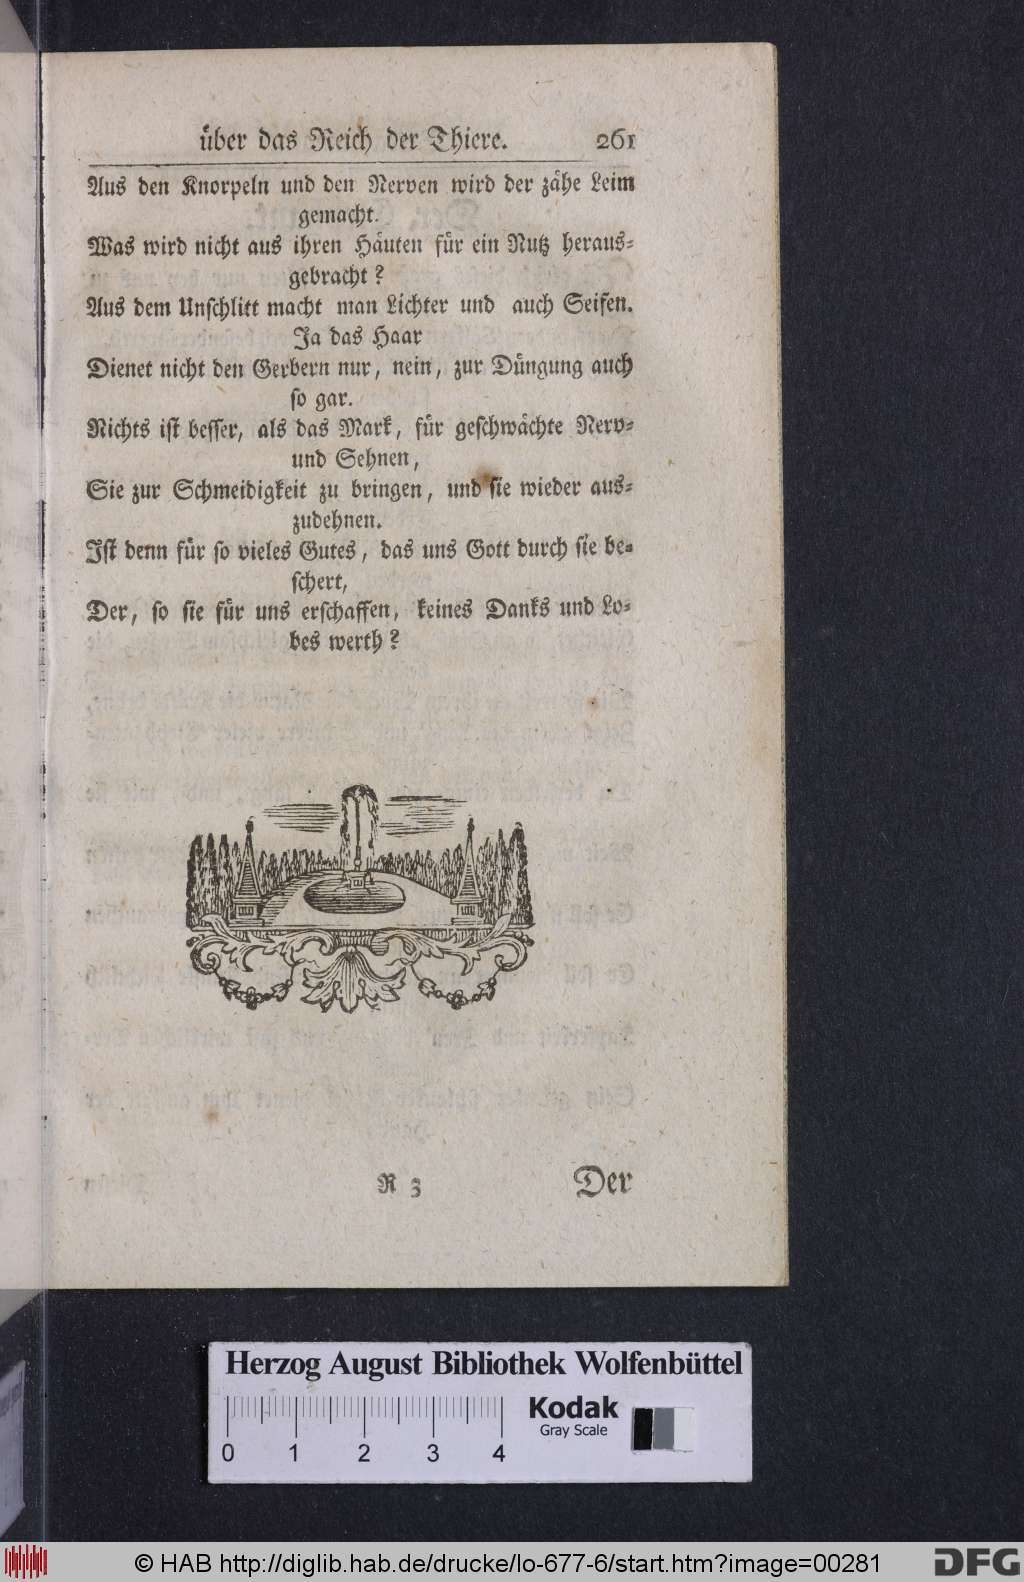 über das Reich der Thiere. 261
Aus den Knorpeln und den Nerven wird der zähe Leim
gemacht.
Was wird nicht aus ihren Häuten für ein Nutz heraus-
gebracht?
Aus dem Unschlitt macht man Lichter und auch Seifen.
Ja das Haar
Dienet nicht den Gerbern nur, nein, zur Düngung auch
so gar.
Nichts ist besser, als das Mark, für geschwächte Nerv-
und Sehnen,
Sie zur Schmeidigkeit zu bringen, und sie wieder aus-
zudehnen.
Ist denn für so vieles Gutes, das uns Gott durch sie be-
schert,
Der, so sie für uns erschaffen, keines Danks und Lo-
bes werth?
R 3 Der
Herzog August Bibliothek Wolfenbüttel
Kodak
Gray Scale
0 1 2 3 4
© HAB http://diglib.hab.de/drucke/lo-677-6/start.htm?image=00281
DFG